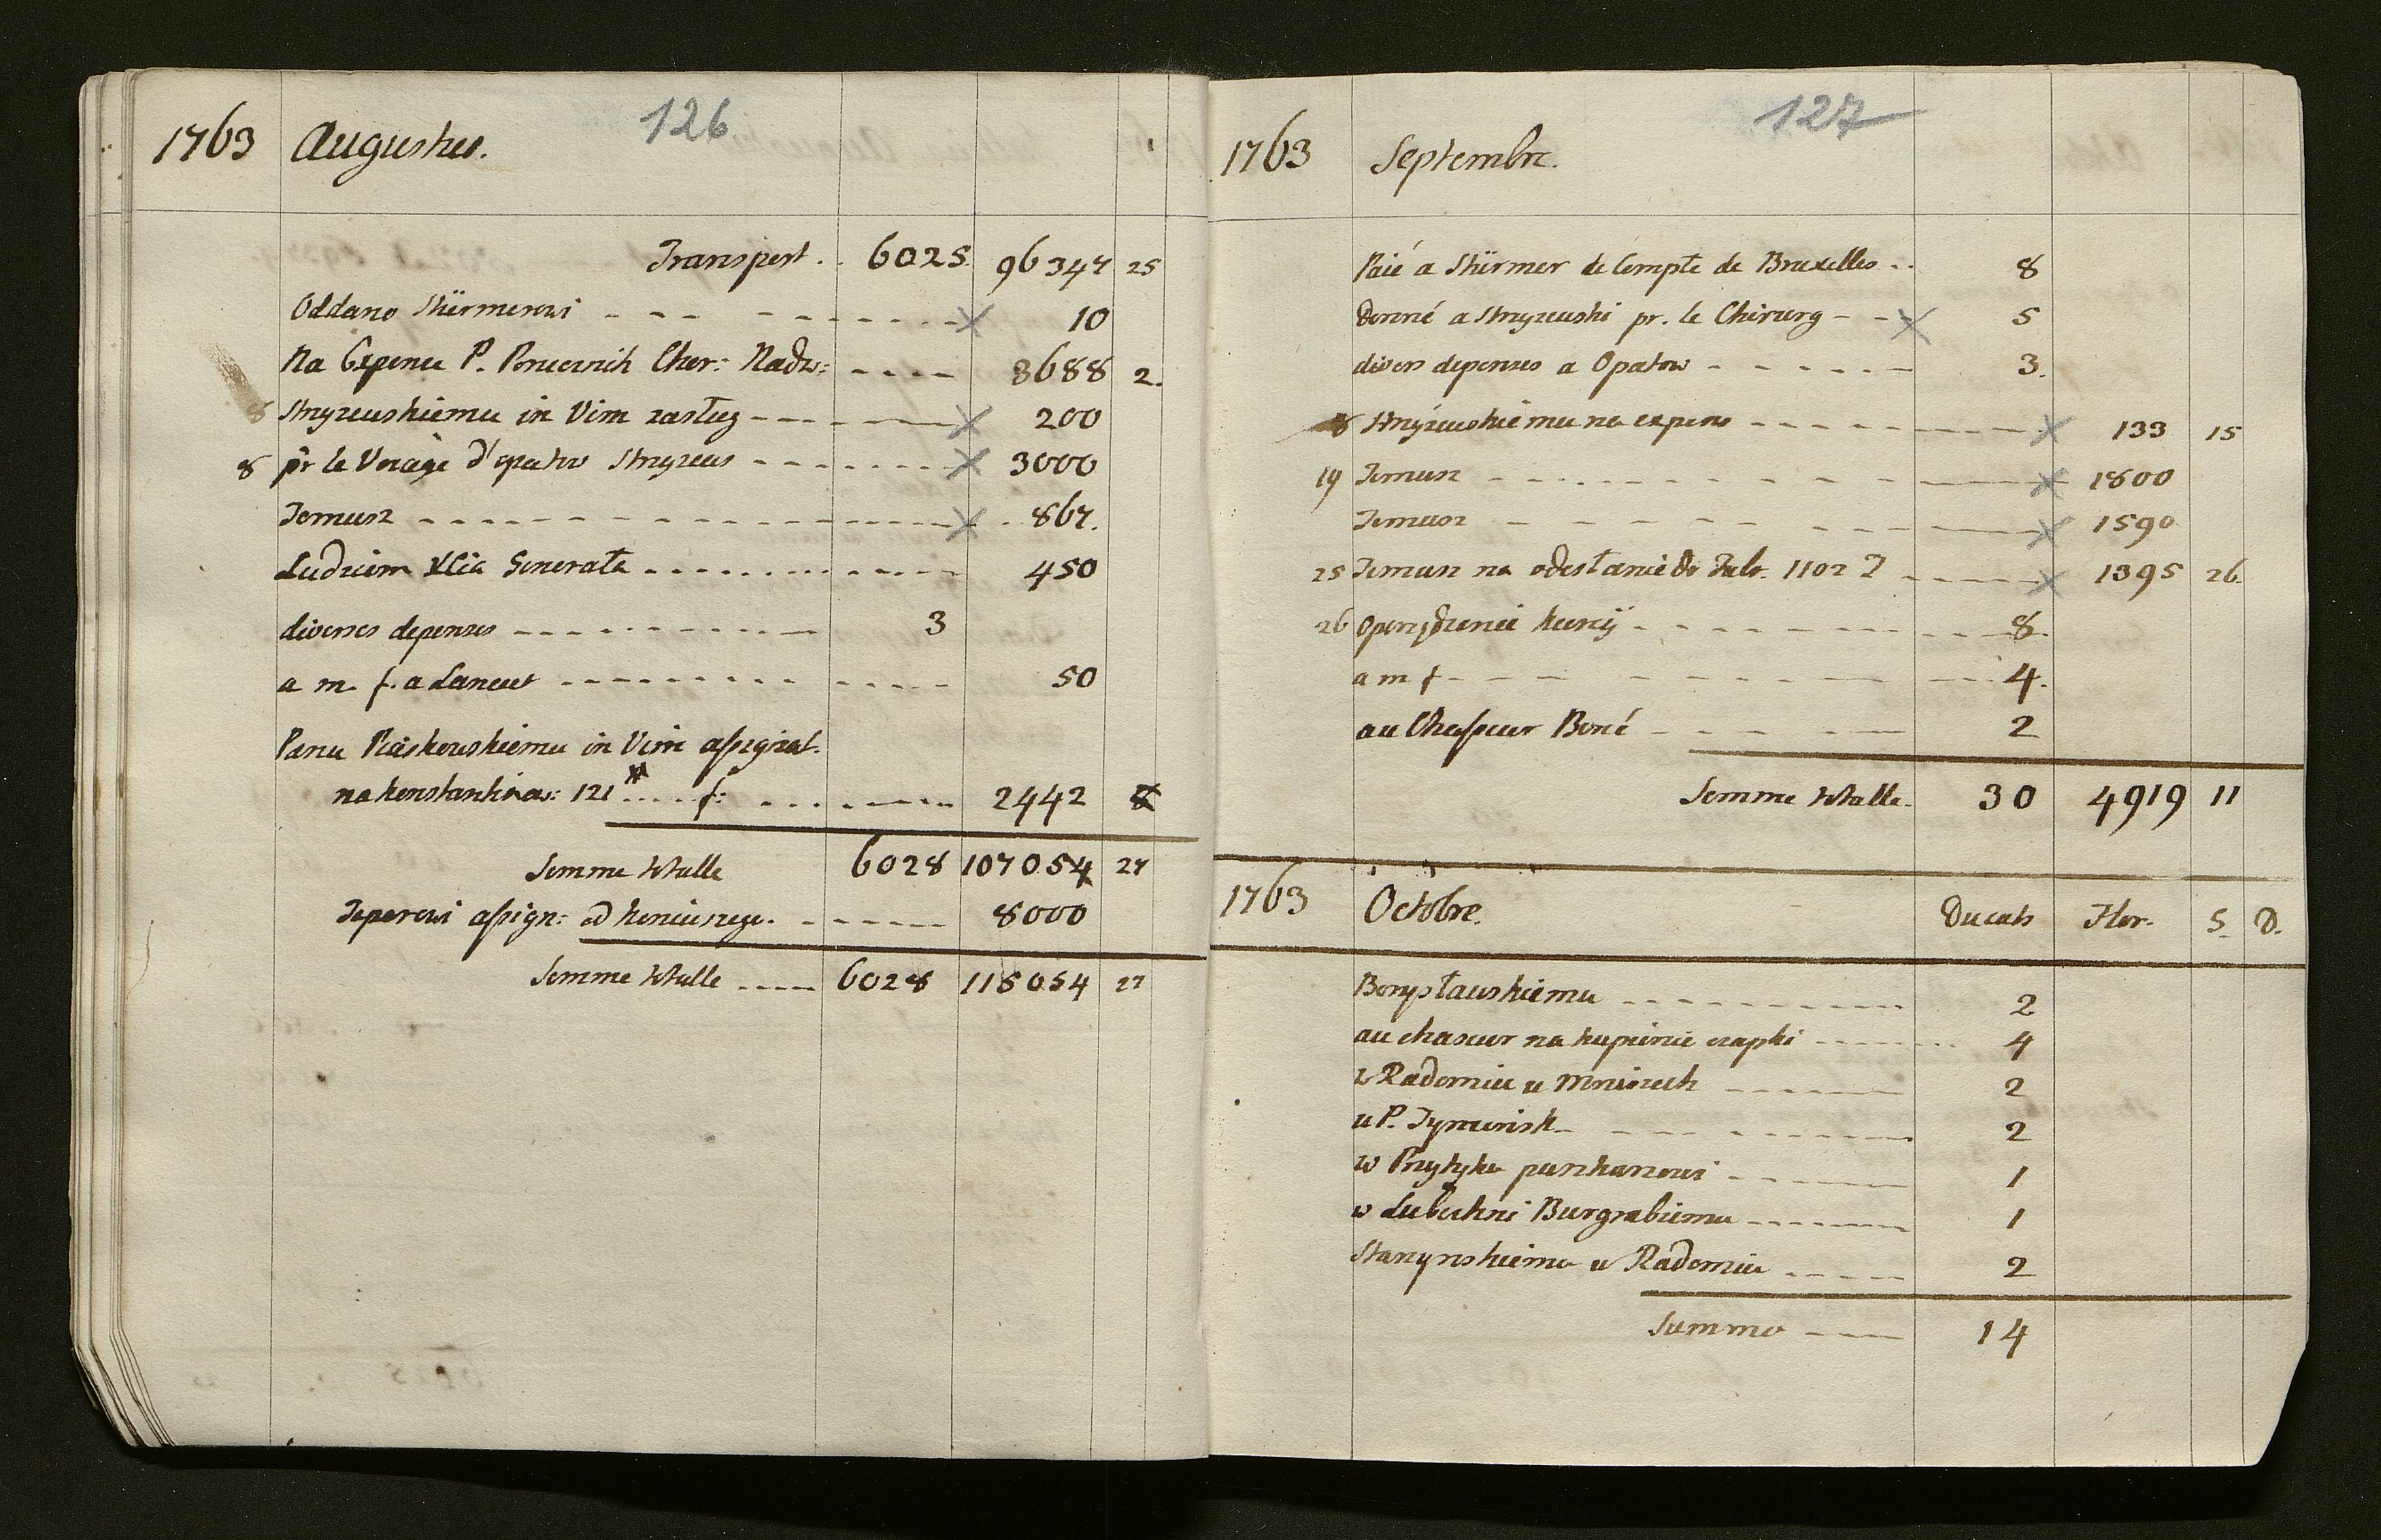 126
1763 Augustus.
Transport. 6025 96347 25
Oddano Stürmerowi 10
Na Expens P. Porucznik Chor: Nadw: 3688 2.
8 Stryzeuskiemu in Vim zasług 200
8 pr le Voiage d'opatow Stryzeus 3000
Temusz 867.
Ludziom Xcia Generała 450
diverses depenses 3
a m. f. a Lancut 50
Panu Piaskouskiemu in Vim assignat.
na konstantinow: 121 f: 2442
Somme totalle 6028 107054 27
Teperowi assign: od koniuszego. 8000
Somme totalle 6028 115054 27
127
1763 Septembre.
Paié a Stürmer le Compte de Bruxelles 8
donné a Stryzeuski pr. le Chirurg 5
divers depenses a Opatow 3.
8 Stryzeuskiemu na expens 133 15
19 Temusz 1800
Temusz 1590
25 Temusz na odesłanie do 1102 1395 26.
26 8.
a m f 4.
au Chasseur Boné 2
Somme totalle. 30 4919 11
1763 Octobre. Ducats Flor. S. D.
Borysłauskiemu 2
au chaseur na kupienie czapki 4
w Radomiu u Mniszech 2
u P. 2
w Przytyku puszkarzowi 1
w Burgrabiemu 1
Starzynskiemu w Radomiu 2
Summa 14